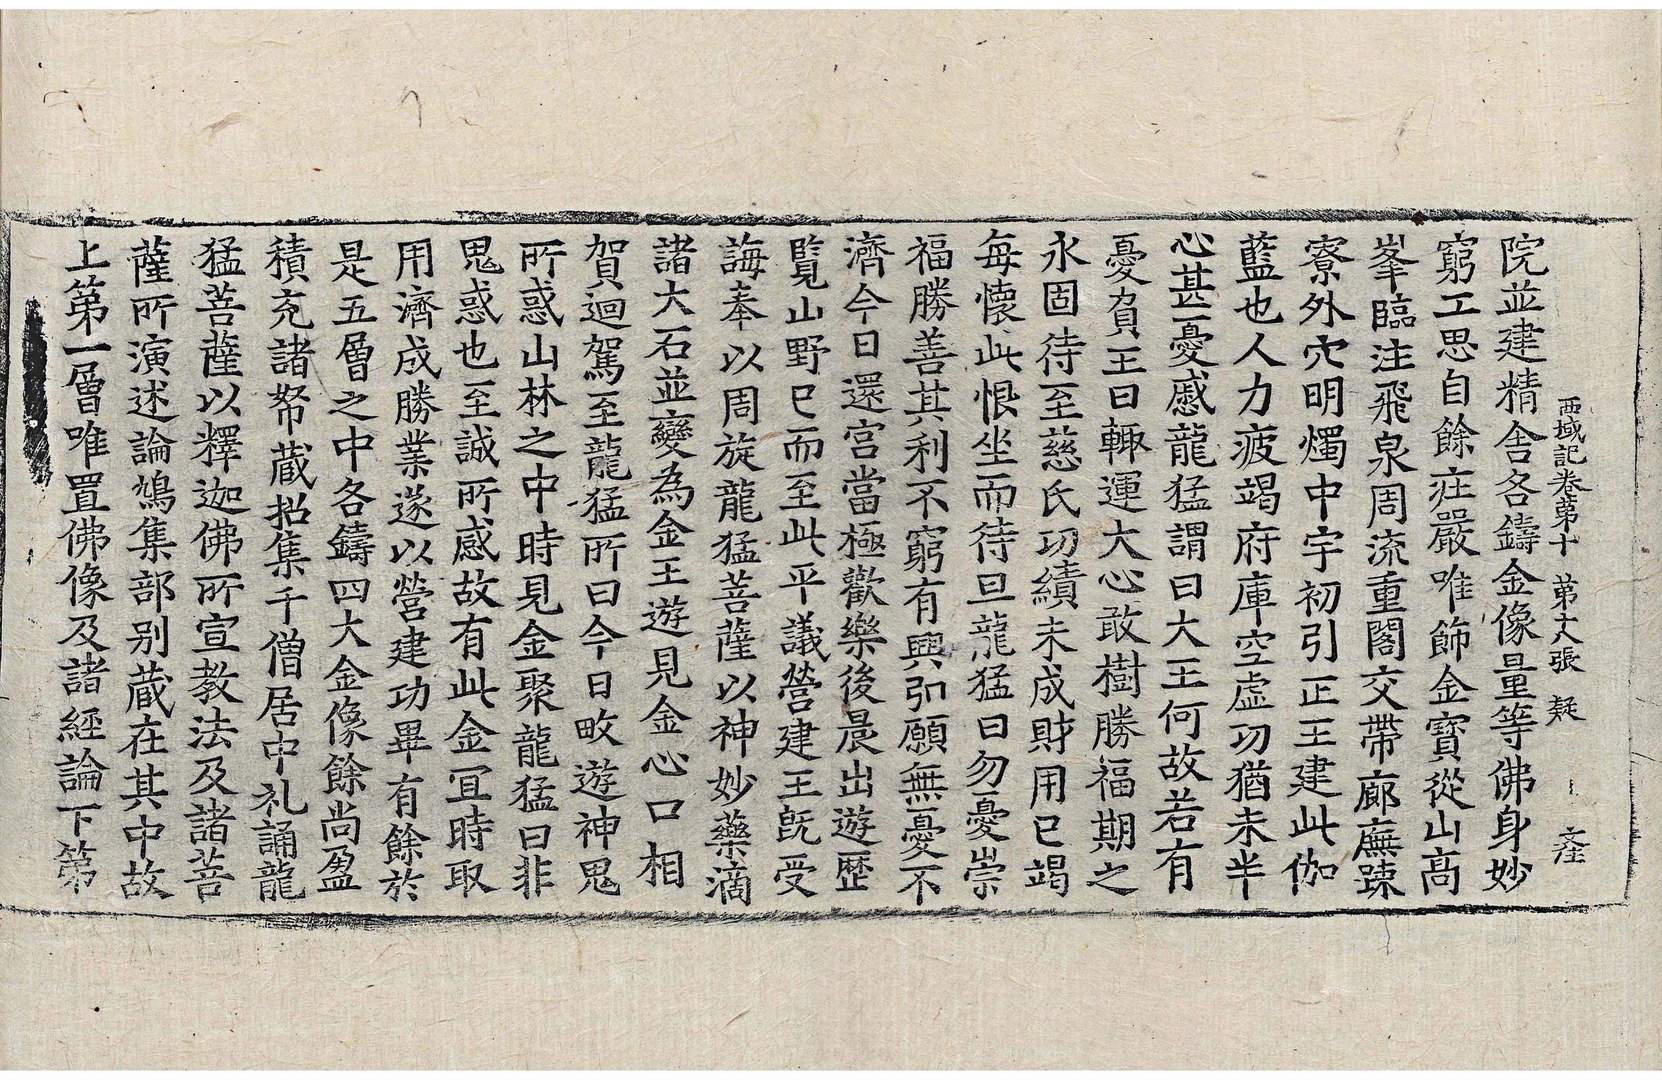 西域記卷第十 第十八張 疑
院並建精舍各鑄金像量等佛身妙
窮工思自餘莊嚴唯飾金寶從山高
峯臨注飛泉周流重閣交帶廊廡踈
寮外穴明燭中宇初引正王建此伽
藍也人力疲竭府庫空虛功猶未半
心甚憂慼龍猛謂曰大王何故若有
憂負王曰輒運大心敢樹勝福期之
永固待至慈氏功績未成財用已竭
每懷此恨坐而待旦龍猛曰勿憂崇
福勝善其利不窮有興弘願無憂不
濟今日還宮當極歡樂後晨出遊歷
覽山野已而至此平議營建王旣受
誨奉以周旋龍猛菩薩以神妙藥滴
諸大石並變為金王遊見金心口相
賀迴駕至龍猛所曰今日畋遊神鬼
所惑山林之中時見金聚龍猛曰非
鬼惑也至誠所感故有此金冝時取
用濟成勝業遂以營建功畢有餘於
是五層之中各鑄四大金像餘尚盈
積充諸帑藏招集千僧居中礼誦龍
猛菩薩以釋迦佛所宣教法及諸菩
薩所演述論鳩集部別藏在其中故
上第一層唯置佛像及諸經論下第